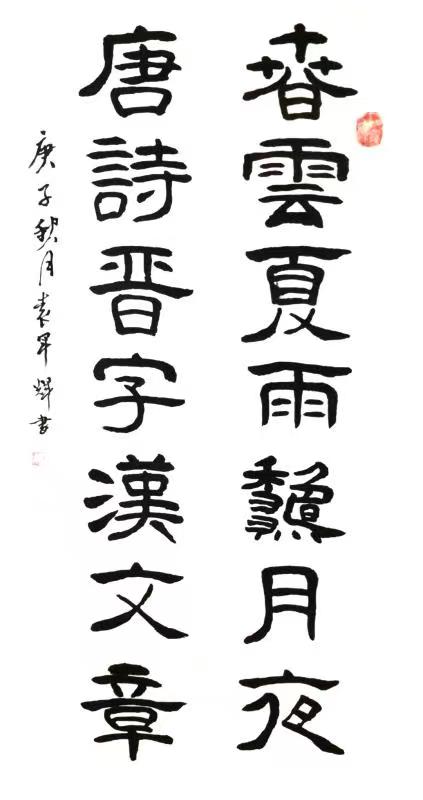 春雲夏雨龝月夜
唐詩晋字漢文章
庚子秋月袁早輝書